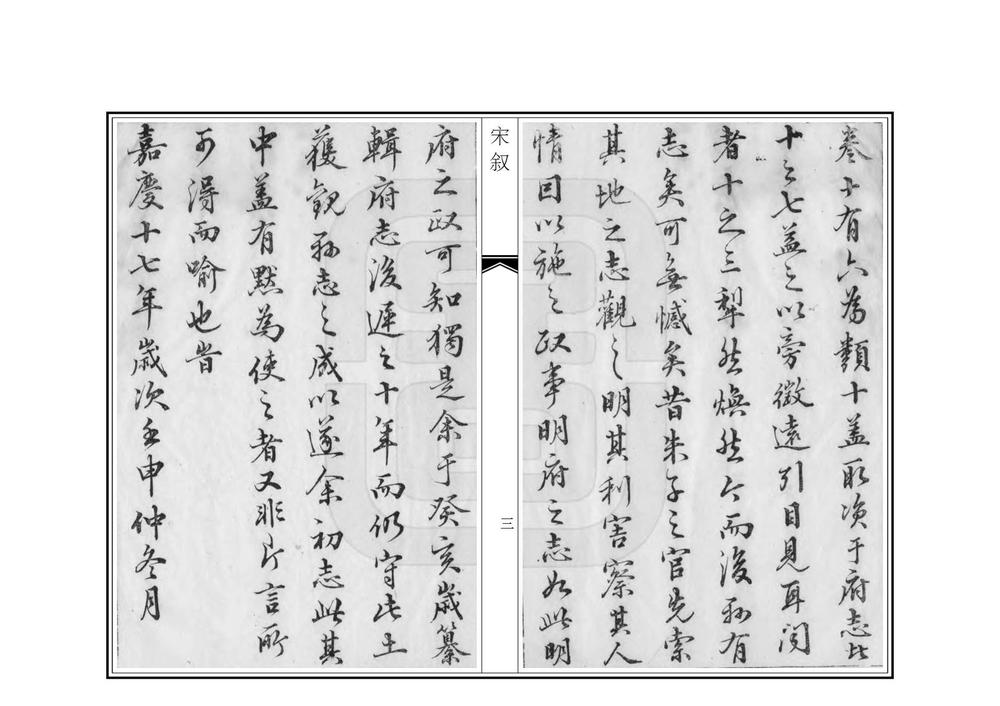 卷十有六為類十盖取資于府志比
十之七益之以旁徵遠引目見耳闻
者十之三犁然煥然今而後縣有
志矣可無憾矣昔朱子之官先索
其地之志觀之明其利害察其人
情因以施之政事明府之志如此明
宋叙
三
府之政可知獨是余于癸亥歲纂
輯府志後遲之十年而仍守此土
獲觀縣志之成以遂余初志此其
中盖有默為使之者又非片言所
可得而喻也旹
嘉慶十七年歲次壬申仲冬月